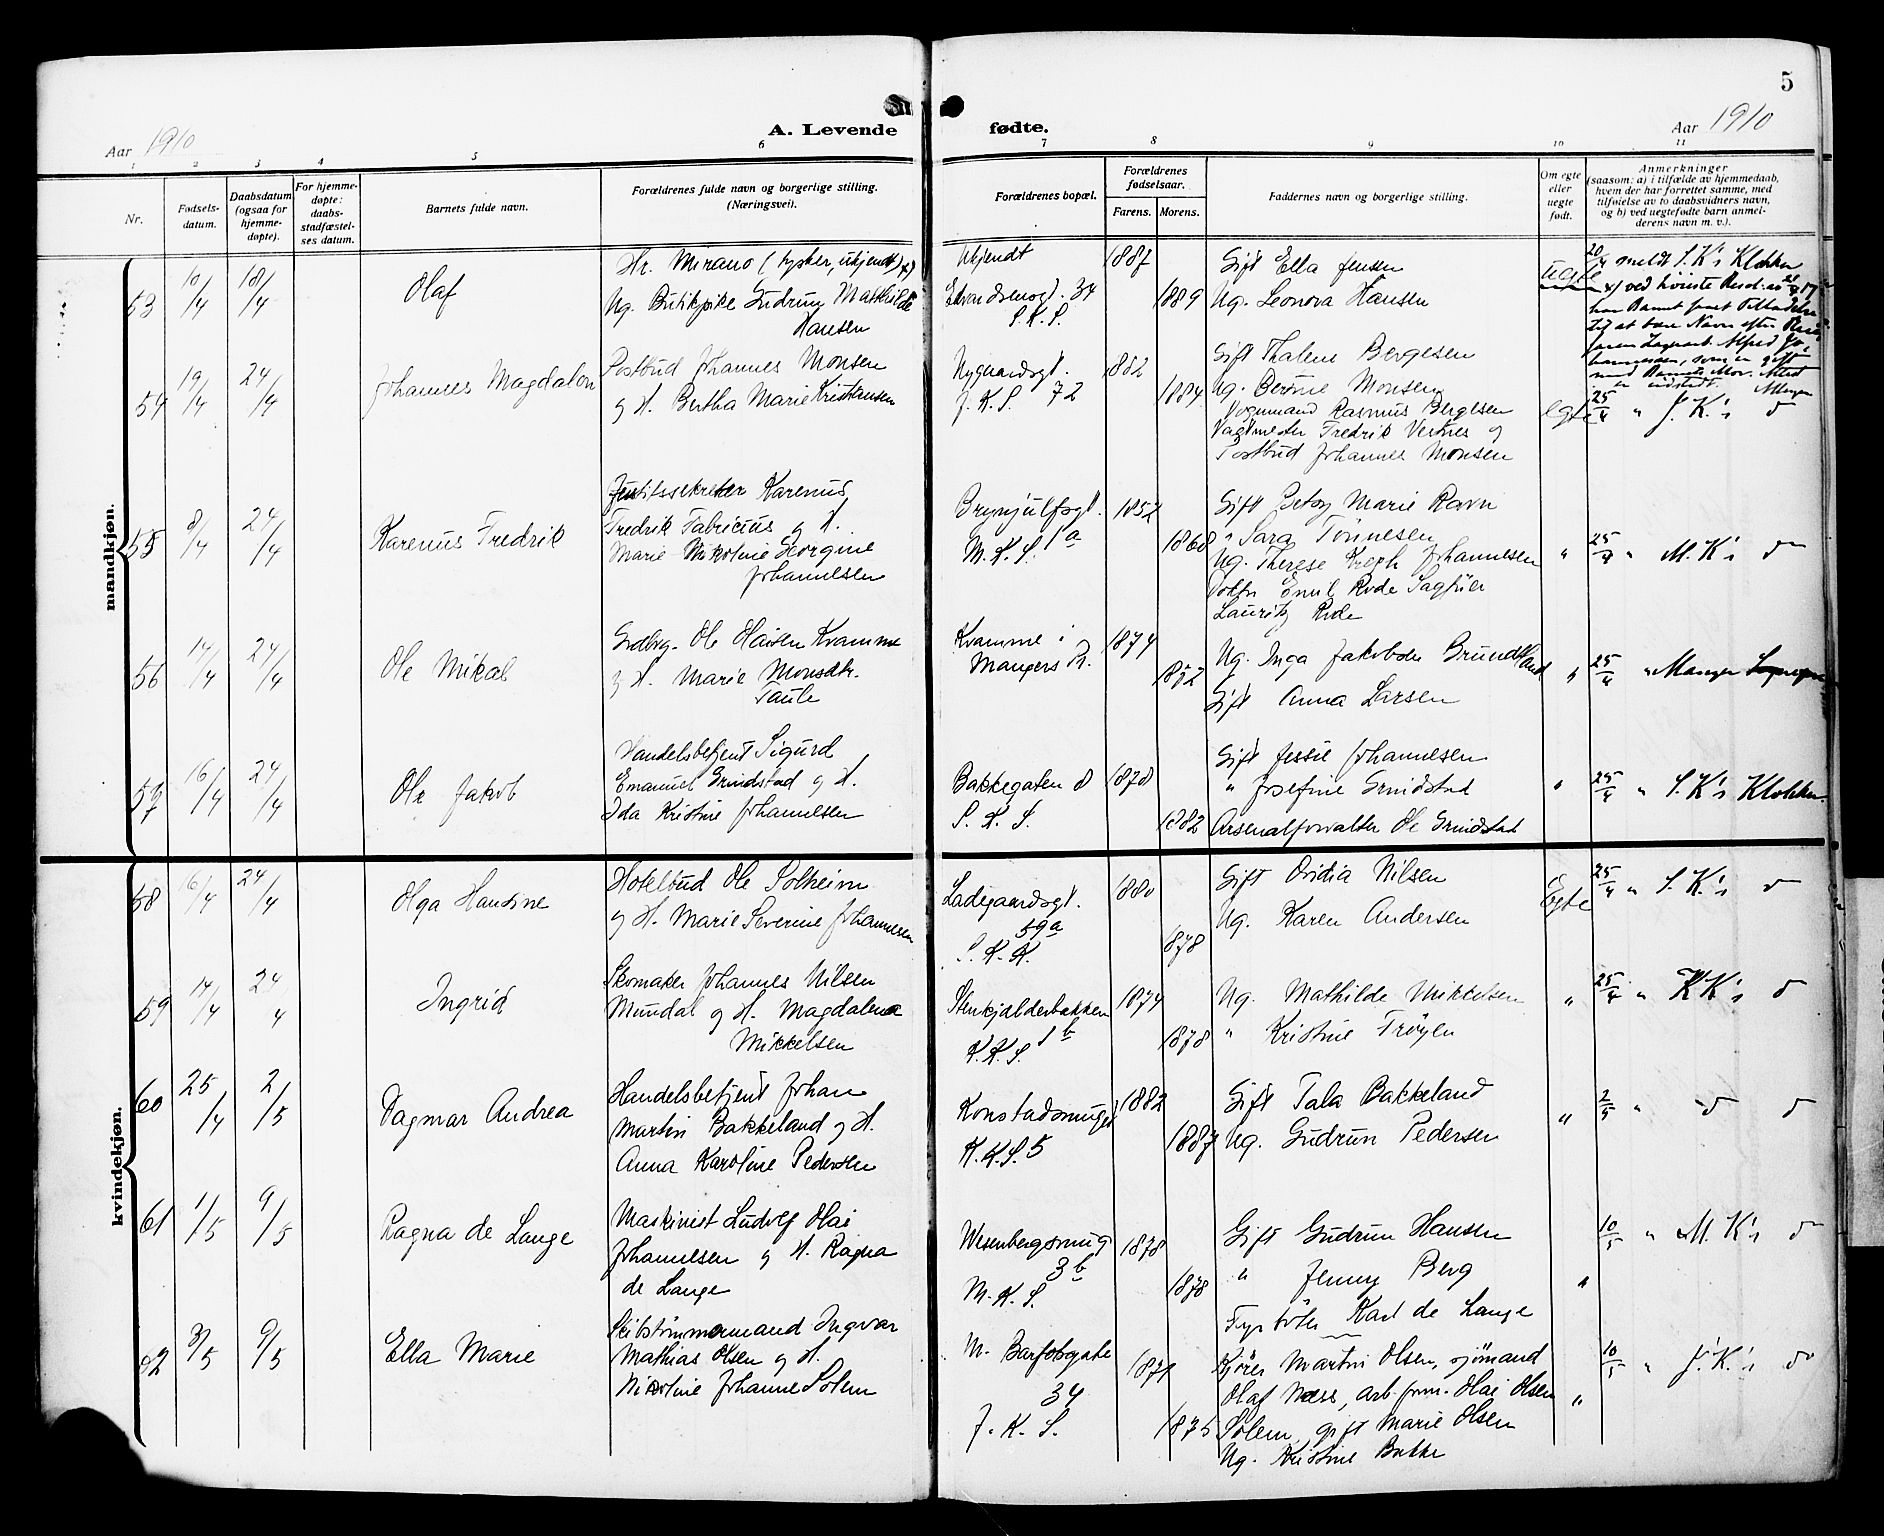 5
Aar 1910
A. Levende fødte.
Aar 1910
1 2 3 4 5 6 7 8 9 10 11
Nr.
Fødsels-
datum.
Daabsdatum
(ogsaa for
hjemme-
døpte).
For hjemme-
døpte:
daabs-
stadfæstel-
ses datum.
Barnets fulde navn.
Forældrenes fulde navn og borgerlige stilling.
(Næringsvei).
Forældrenes bopæl.
Forældrenes
fødselsaar.
Farens. Morens.
Faddernes navn og borgerlige stilling.
Om egte
eller
uegte
født.
Anmerkninger
(saasom: a) i tilfælde av hjemmedaab,
hvem der har forrettet samme, med
tilføielse av to daabsvidners navn,
og b) ved uegtefødte barn anmel-
derens navn m. v.).
mandkjøn.
53
10/4
18/4
Olaf
Hr. Mirano (tysker, ukjendt) x)
Ug. Butikpike Gudrun Mathilde
Hansen
Ukjendt
Edvardsensgt. 34
S. K. S.
1887
1889
Gift Ella Jensen
Ug. Leonora Hansen
uegte
20/4 meldt S. K's Klokker
x) ved høieste Resol. av
har Barnet faat Tilladelse
til at bære Navn efter
Alfred Jo-
hannessen, som er gift
med Barnets Mor.
54
19/4
24/4
Johannes Magdalon
Postbud Johannes Monsen
og H. Bertha Marie Kristiansen
Nygaardsgt.
J. K. S. 72
1882
1884
Gift Thalene Bergesen
Ug. Bertine Monsen
Vognmand Rasmus Bergesen
Vagtmester Fredrik Vestnes og
Postbud Johannes Monsen
egte
25/4 " J. K.'s d
55
8/4
24/4
Karenus Fredrik
Justitssekretær Karenus
Fredrik Fabricius og H.
Marie Nikoline Georgine
Johannessen
Brynjulfsgt.
M. K. S. 1a
1857
1868
Gift Betsy Marie Ravn
" Sara Tönnesen
Ug. Therese Krogh Johannessen
Emil Rode Sagfører
Lauritz Rode
"
25/4 " M. K's d
56
14/4
24/4
Ole Mikal
Grdbrg. Ole Hansen Kvamme
og H. Marie Monsdtr.
Taule
Kvamme i
Mangers Pr.
1874
1872
Ug. Inga Jakobsen Brundtland
Gift Anna Larsen
"
25/4 " Manger
57
16/4
24/4
Ole Jakob
Handelsbetjent Sigurd
Emanuel Grindstad og H.
Ida Kristine Johannessen
Bakkegaten 8
S. K. S.
1878
1882
Gift Jessie Johannessen
" Josefine Grindstad
Arsenalforvalter Ole Grindstad
"
25/4 " S. K's Klokker.
kvindekjøn.
58
16/4
24/4
Olga Hansine
Hotelbud Ole Solheim
og H. Marie Severine Johannessen
Ladegaardsgt.
59a
S. K. K.
1880
1878
Gift Ovidia Nilsen
Ug. Karen Andersen
Egte
25/4 " S. K.'s d
59
14/4
24/4
Ingrid
Skomaker Johannes Nilsen
Mundal og H. Magdalena
Mikkelsen
Stenkjælderbakken
K. K. S. 1b
1874
1878
Ug. Mathilde Mikkelsen
" Kristine Trøyen
"
25/4 " K K's d
60
25/4
2/5
Dagmar Andrea
Handelsbetjent Johan
Martin Bakkeland og H.
Anna Karoline Pedersen
Konstadsmuget
K. K. S. 5
1882
1887
Gift Tala Bakkeland
Ug. Gudrun Pedersen
"
2/5 " d d
61
1/5
9/5
Ragna de Lange
Maskinist Ludolf Olai
Johannessen og H. Ragna
de Lange
Wesenbergsmug
3b
M. K. S.
1878
1878
Gift Gudrun Hansen
" Jenny Berg
Fyrbøter Karl de Lange
"
10/5 " M. K's d
62
3/5
9/5
Ella Marie
Skibstömmermand Ingvar
Mathias Olsen og H.
Nikoline Johanne Solem
M. Barfotgate
34
J. K. S.
1871
1875
Kjører Martin Olsen, sjömand
Olaf Næss, arb. form. Olai Olsen
Solem, gift Marie Olsen
Ug. Kristine Bakke
"
10/5 " J. K.'s d